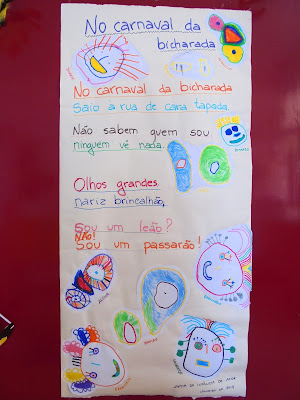 No carnaval da
bicharada
No carnaval da bicharada
Saio à rua de cara tapada.
Não sabem quem sou
ninguém vê nada.
Olhos grandes
nariz brincalhão,
Sou um leão?
NÃO!
Sou um passarão!